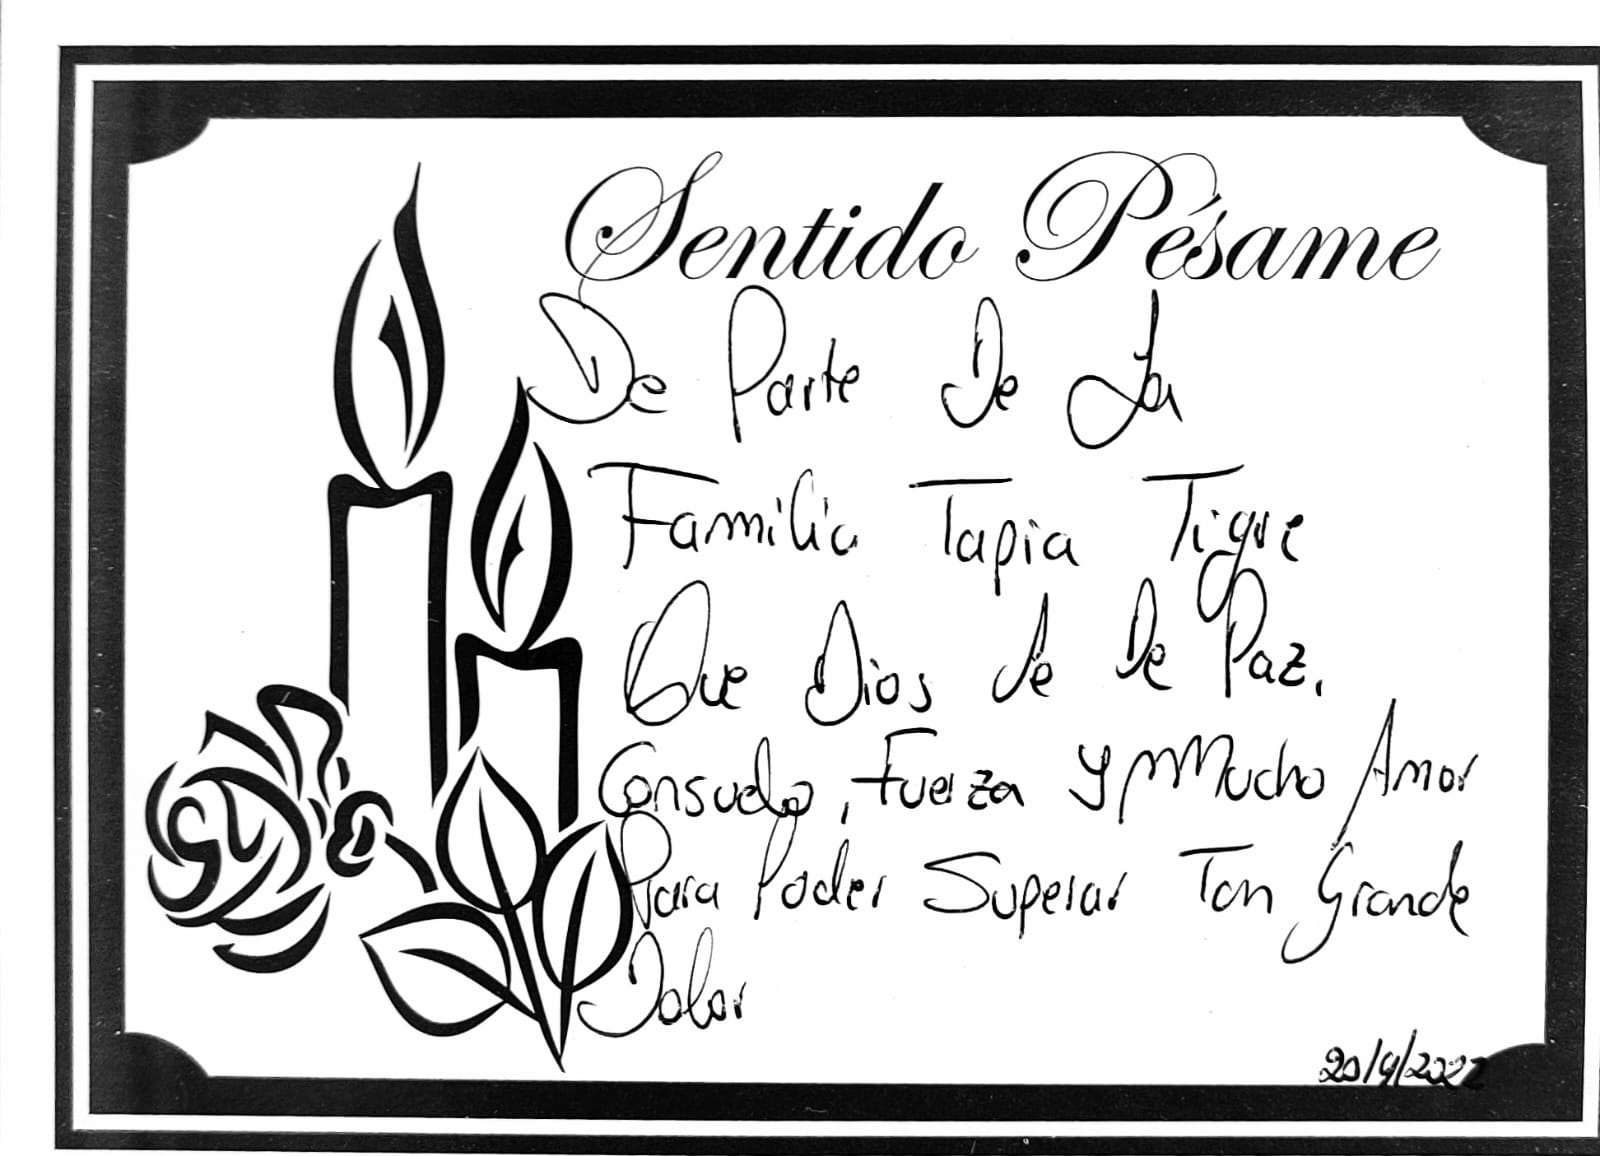 Sentido Pésame
De Parte De La
Familia Tapia Tigre
Que Dios le De Paz,
Consuelo, Fuerza y Mucho Amor
Para Poder Superar Tan Grande
Dolor
20/9/2022